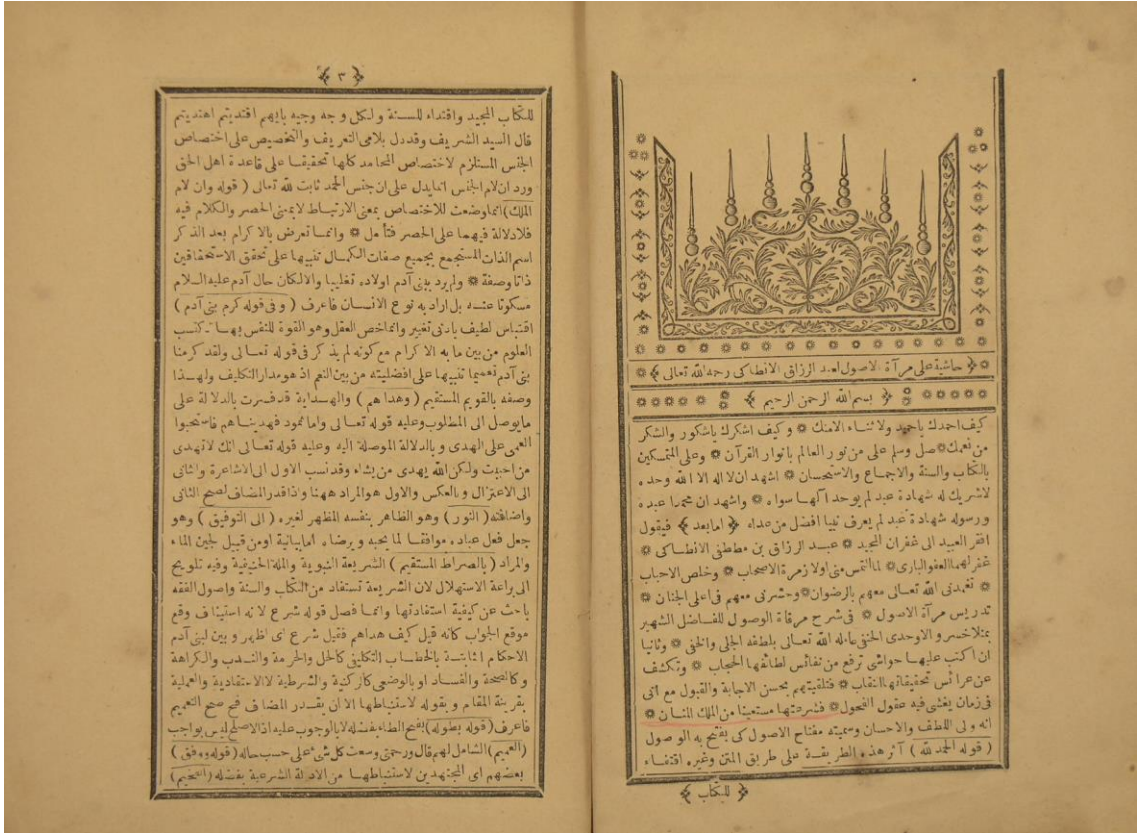 حاشية على مرآة الاصول لعبد الرزاق الانطاكى رحمه الله تعالى
بسم الله الرحمن الرحيم
كيف احمدك ياحميد ولا ثناء الا منك وكيف اشكرك ياشكور والشكر
من نعمك صل وسلم على من نور العالم بانوار القرآن وعلى المتمسكين
بالكتاب والسنة والاجماع والاستحسان اشهد ان لا اله الا الله وحده
لاشريك له شهادة عبد لم يوحد آلها سواه واشهد ان محمدا عبده
ورسوله شهادة عبد لم يعرف نبيا افضل من عداه امابعد فيقول
افقر العبيد الى غفران المجيد عبد الرزاق بن مصطفى الانطاكى
غفر لهما العفو البارى لما التمس منى اولا زمرة الاصحاب وخلص الاحباب
تغمدنى الله تعالى معهم بالرضوان وحشرنى معهم فى اعلى الجنان
تدريس مرآة الاصول فى شرح مرقاة الوصول للفاضل الشهير
بمنلاخسرو الاوحدى الحنفى عامله الله تعالى بلطفه الجلى والخفى وثانيا
ان اكتب عليها حواشى ترفع من نفائس لطائفها الحجاب وتكشف
عن عرائس تحقيقاتها النقاب فتلقيتهم بحسن الاجابة والقبول مع انى
فى زمان يغشى فيه عقول الفحول فشرعتها مستعينا من الملك المنان
انه ولى اللطف والاحسان وسميته مفتاح الاصول كى يفتح به الوصول
( قوله الحمد لله ) آثر هذه الطريقة على طريق المتن وغيره اقتفاء
للكتاب
٣
للكتاب المجيد واقتداء للسنة ولكل وجه وجيه بايهم اقتديتم اهتديتم
قال السيد الشريف وقد دل بلامى التعريف والتخصيص على اختصاص
الجنس المستلزم لاختصاص المحامد كلها تحقيقا على قاعدة اهل الحق
ورد ان لام الجنس انما يدل على ان جنس الحمد ثابت لله تعالى ( قوله وان لام
الملك ) انما وضعت للاختصاص بمعنى الارتباط لا بمعنى الحصر والكلام فيه
فلا دلالة فيهما على الحصر فتأمل وانما تعرض بالاكرام بعد الذكر
اسم الذات المستجمع بجميع صفات الكمال تنبيها على تحقق الاستحقاقين
ذاتا وصفة ولم يرد ببنى آدم اولاده تغليبا والا لكان حال آدم عليه السلام
مسكوتا عنه بل اراد به نوع الانسان فاعرف ( وفى قوله كرم بنى آدم )
اقتباس لطيف بادنى تغيير وانما خص العقل وهو القوة للنفس بها تكتسب
العلوم من بين ما به الاكرام مع كونه لم يذكر فى قوله تعالى ولقد كرمنا
بنى آدم تعميما تنبيها على افضليته من بين النعم اذ هو مدار التكليف ولهذا
وصفه بالقويم المستقيم ( وهداهم ) والهداية قد فسرت بالدلالة على
مايوصل الى المطلوب وعليه قوله تعالى واما ثمود فهديناهم فاستحبوا
العمى على الهدى وبالدلالة الموصلة اليه وعليه قوله تعالى انك لاتهدى
من احببت ولكن الله يهدى من يشاء وقد نسب الاول الى الاشاعرة والثانى
الى الاعتزال وبالعكس والاول هو المراد ههنا واذا قدر المضاف لصح الثانى
واضافته ( النور ) وهو الظاهر بنفسه المظهر لغيره ( الى التوفيق ) وهو
جعل فعل عباده موافقا لما يحبه ويرضاه اما بيانية او من قبيل لجين الماء
والمراد ( بالصراط المستقيم ) الشريعة النبوية والملة الحنيفية وفيه تلويح
الى براعة الاستهلال لان الشريعة تستفاد من الكتاب والسنة واصول الفقه
باحث عن كيفية استفادتها وانما فصل قوله شرع لانه استيناف وقع
موقع الجواب كانه قيل كيف هداهم فقيل شرع اى اظهر وبين لبنى آدم
الاحكام الثابتة بالخطاب التكليفى كالحل والحرمة والندب والكراهة
وكالصحة والفساد او بالوضعى كالركنية والشرطية لا الاعتقادية والعملية
بقرينة المقام وبقوله لاستنباطها الا ان يقدر المضاف فح صح التعميم
فاعرف ( قوله بطوله ) بفتح الطاء بفضله لا بالوجوب عليه اذ الاصلح ليس بواجب
( العميم ) الشامل لهم قال ورحمتى وسعت كل شئ على حسب حاله ( قوله ووفق )
بعضهم اى المجتهدين لاستنباطها من الادلة الشرعية بفضله ( الفخيم )